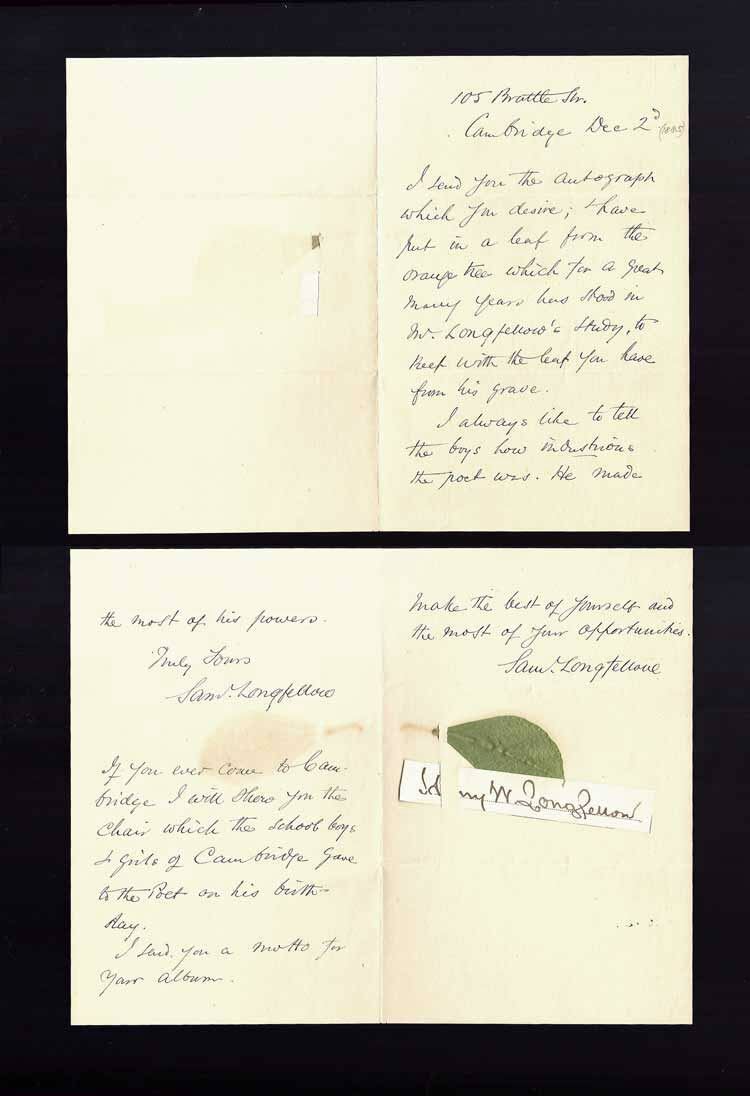 105 Brattle St.
Cambridge Dec 2d
I send you the autograph
which you desire; & have
put in a leaf from the
orange tree which for a great
many years has stood in
Mr. Longfellow's study, to
keep with the leaf you have
from his grave.
I always like to tell
the boys how industrious
the poet was. He made
the most of his powers.
Truly Yours
Saml. Longfellow
If you ever come to Cam-
bridge I will show you the
Chair which the school boys
& girls of Cambridge gave
to the Poet on his birth-
day.
I send you a motto for
your album.
Make the best of yourself and
the most of your opportunities.
Saml. Longfellow
Henry W. Longfellow